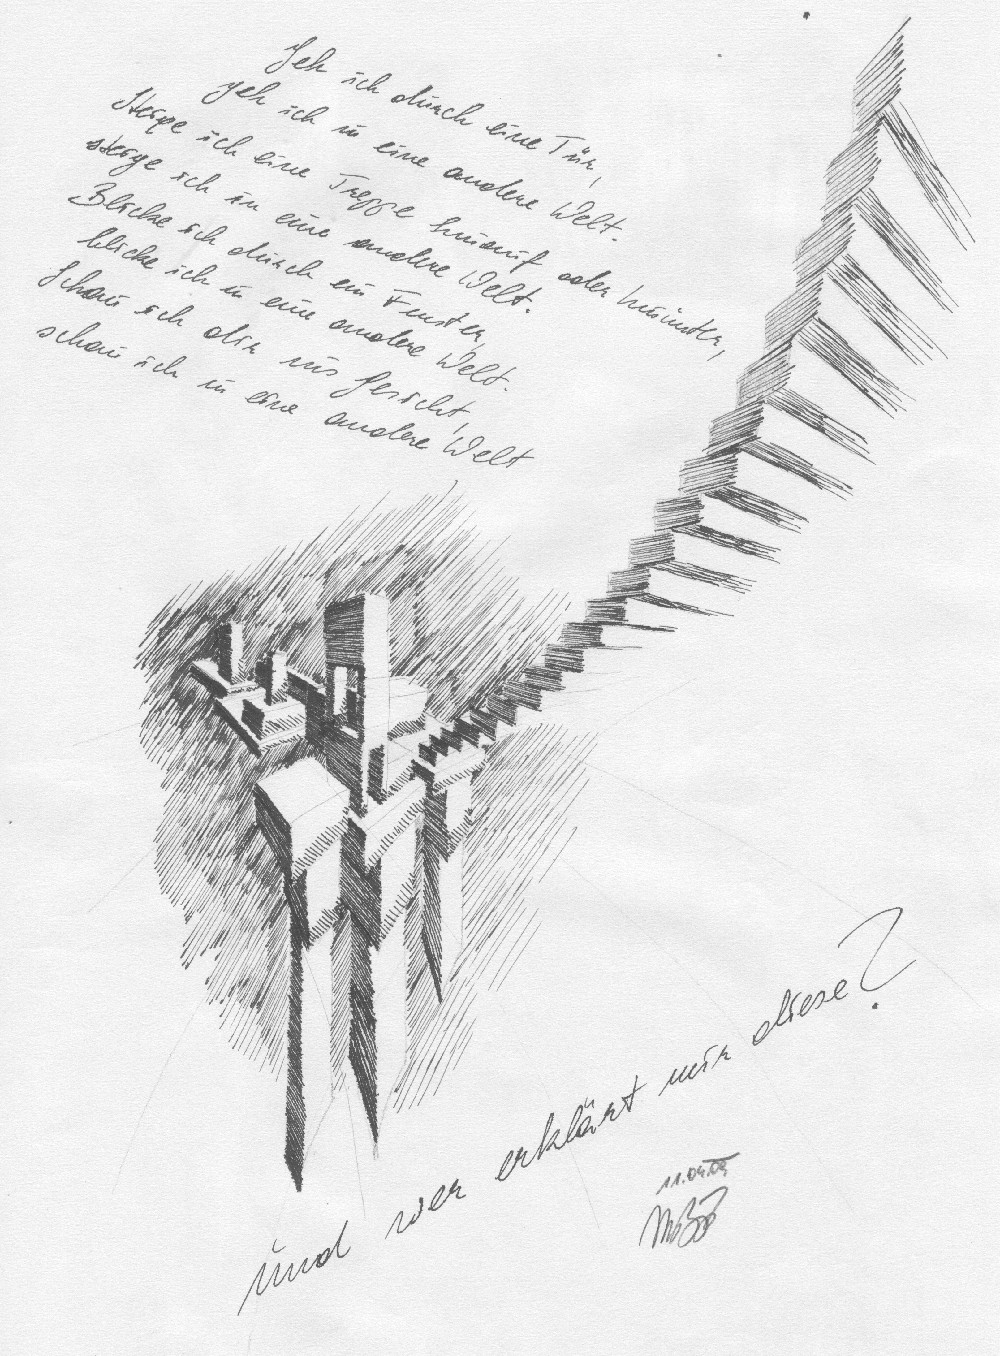 Geh ich durch eine Tür,
geh ich in eine andere Welt.
Steige ich eine Treppe hinauf oder hinunter,
steige ich in eine andere Welt.
Blicke ich durch ein Fenster,
blicke ich in eine andere Welt.
Schau ich dir ins Gesicht,
schau ich in eine andere Welt
und wer erklärt mir diese?
11.04.09